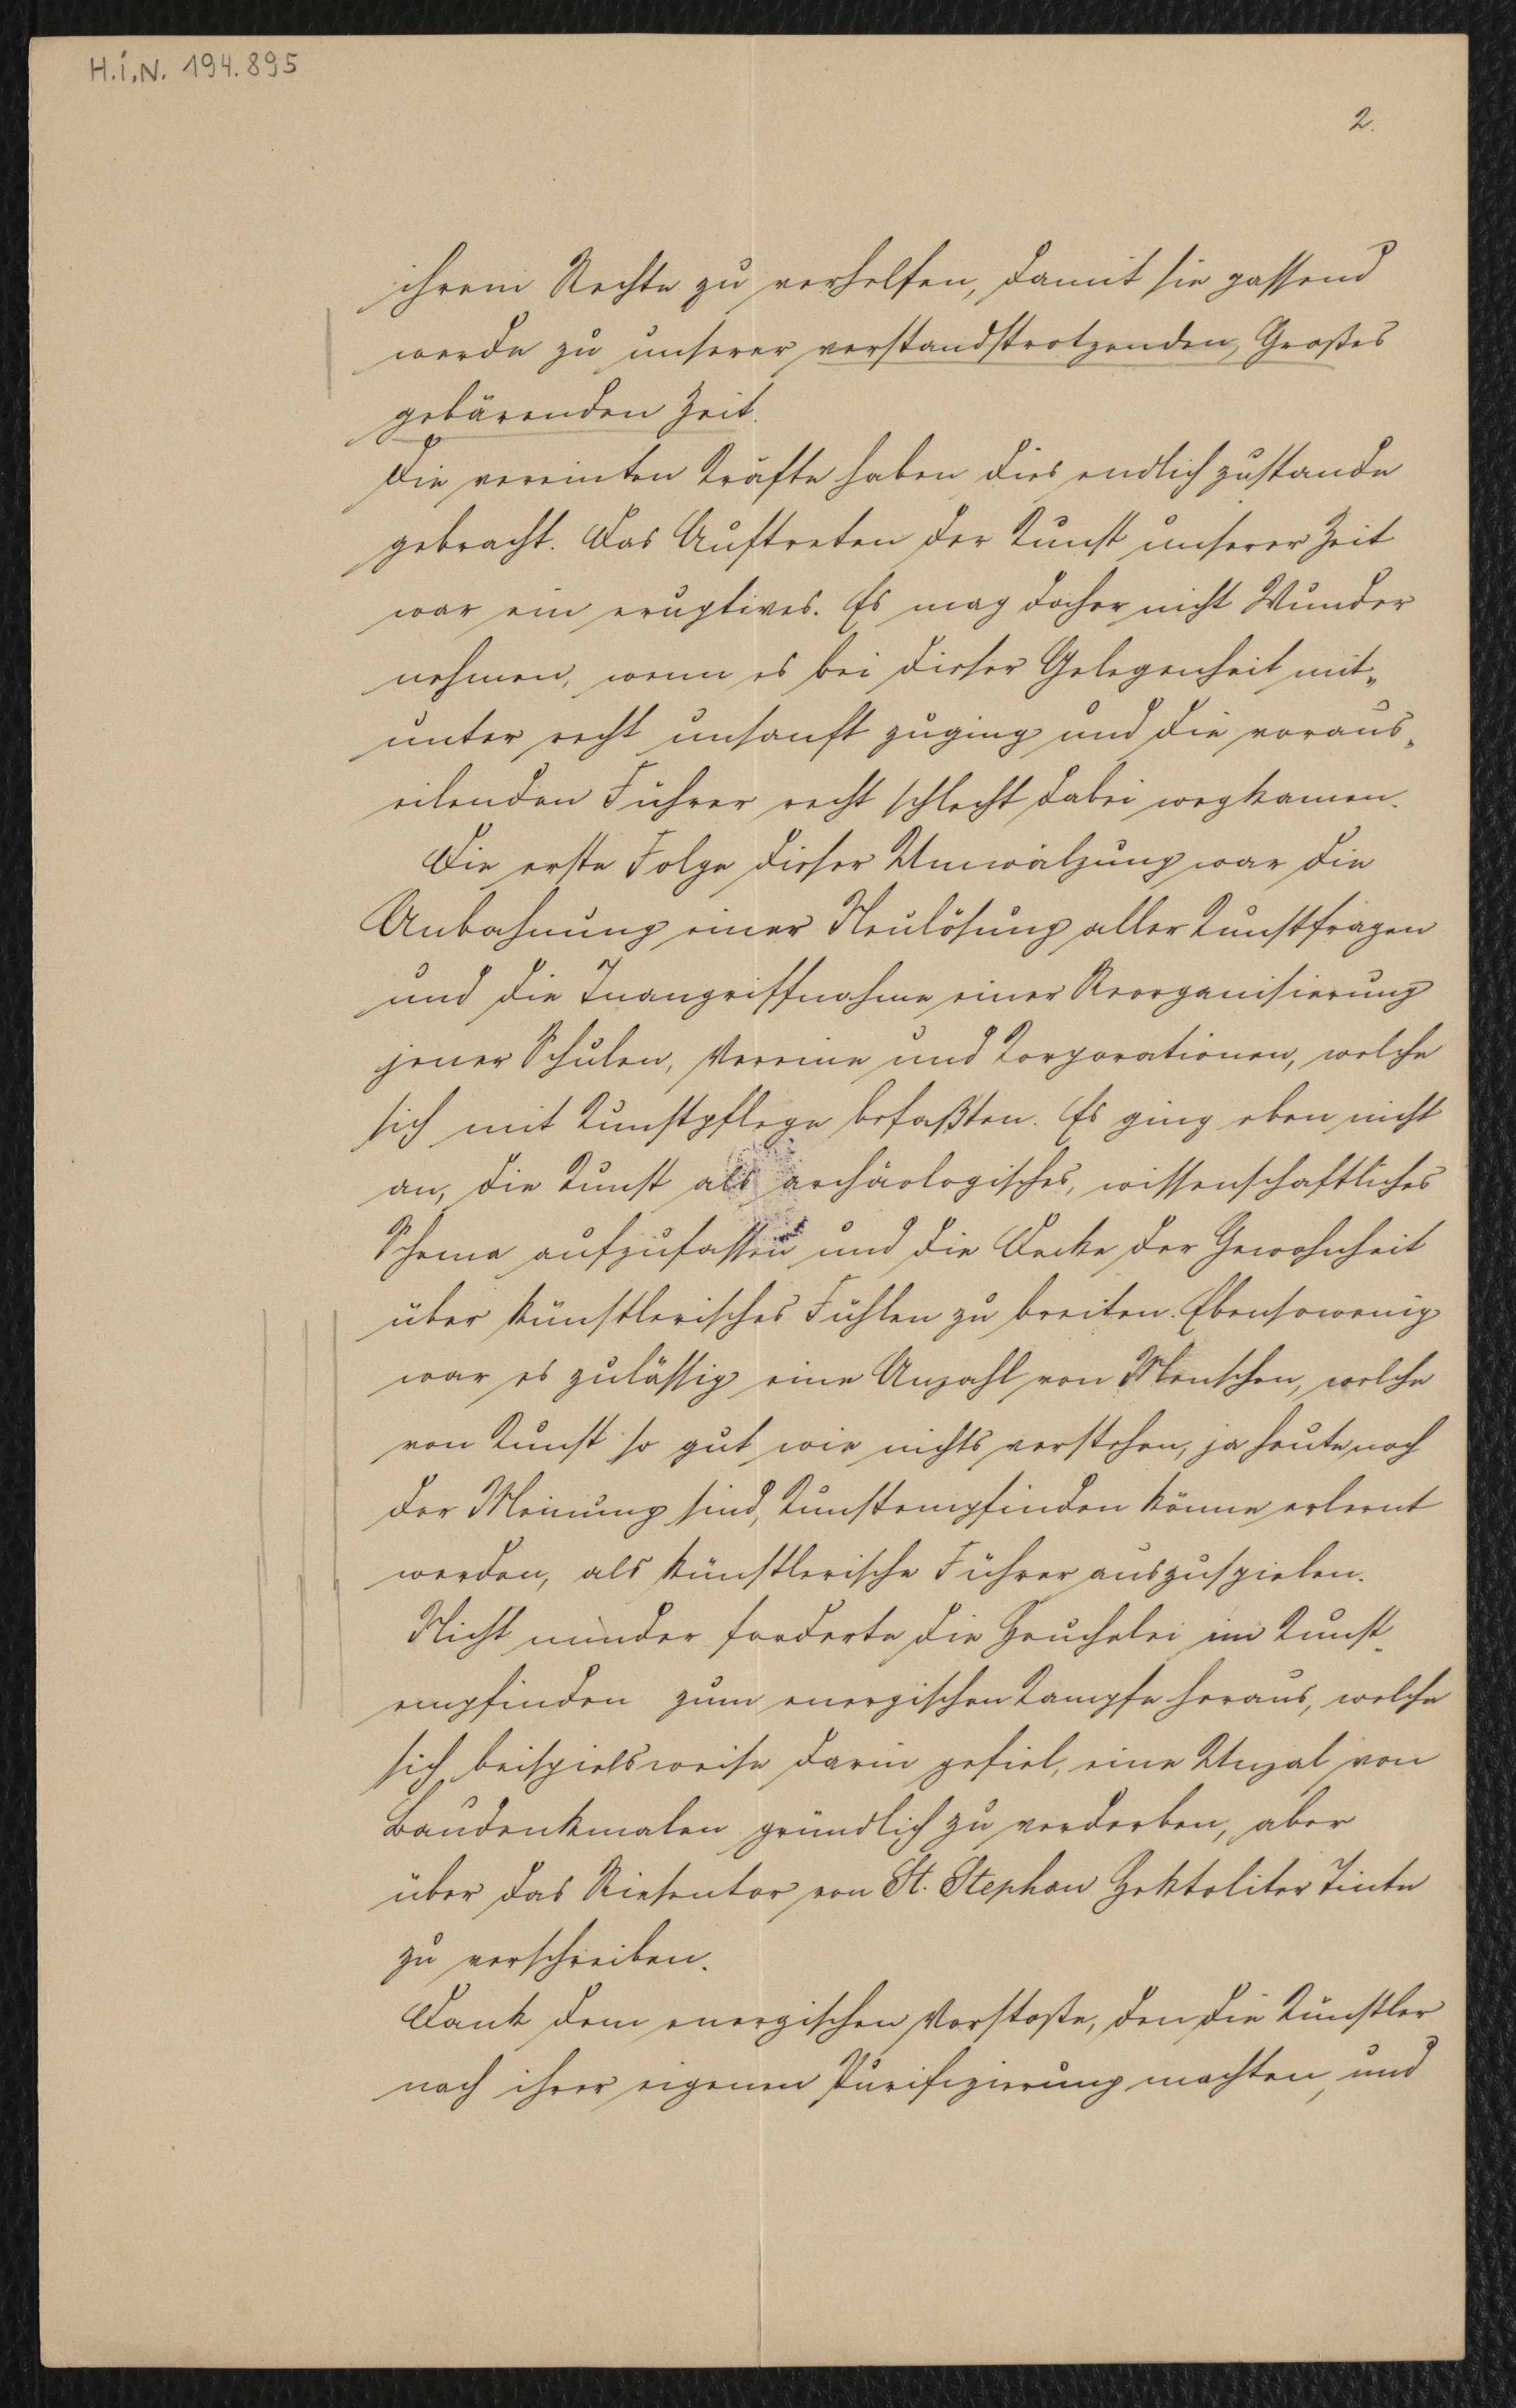 H.I.N. 194.895
2.
ihrem Rechte zu verhelfen, damit sie passend
werde zu unserer verstandstrotzenden, Großes
gebärenden Zeit.
Die vereinten Kräfte haben dies endlich zustande
gebracht. Das Auftreten der Kunst unserer Zeit
war ein eruptives. Es mag daher nicht Wunder
nehmen, wenn es bei dieser Gelegenheit mit„
unter recht unsanft zuging und die voraus„
eilenden Führer recht schlecht dabei wegkamen.
Die erste Folge dieser Umwälzung war die
Anbahnung einer Neulösung aller Kunstfragen
und die Inangriffnahme einer Reorganisierung
jener Schulen, Vereine und Korporationen, welche
sich mit Kunstpflege befaßten. Es ging eben nicht
an, die Kunst als archäologisches, wissenschaftliches
Schema aufzufassen und die Decke der Gewohnheit
über künstlerisches Fühlen zu breiten. Ebensowenig
war es zulässig eine Anzahl von Menschen, welche
von Kunst so gut wie nichts verstehen, ja heute noch
der Meinung sind, Kunstempfinden könne erlernt
werden, als künstlerische Führer auszuspielen.
Nicht minder forderte die Heuchelei im Kunst„
empfinden zum energischen Kampfe heraus, welche
sich beispielsweise darin gefiel, eine Unzal von
Baudenkmalen gründlich zu verderben, aber
über das Riesentor von St. Stephan Hektoliter Tinte
zu verschreiben.
Dank dem energischen Vorstoße, den die Künstler
nach ihrer eigenen Purifizierung machten, und